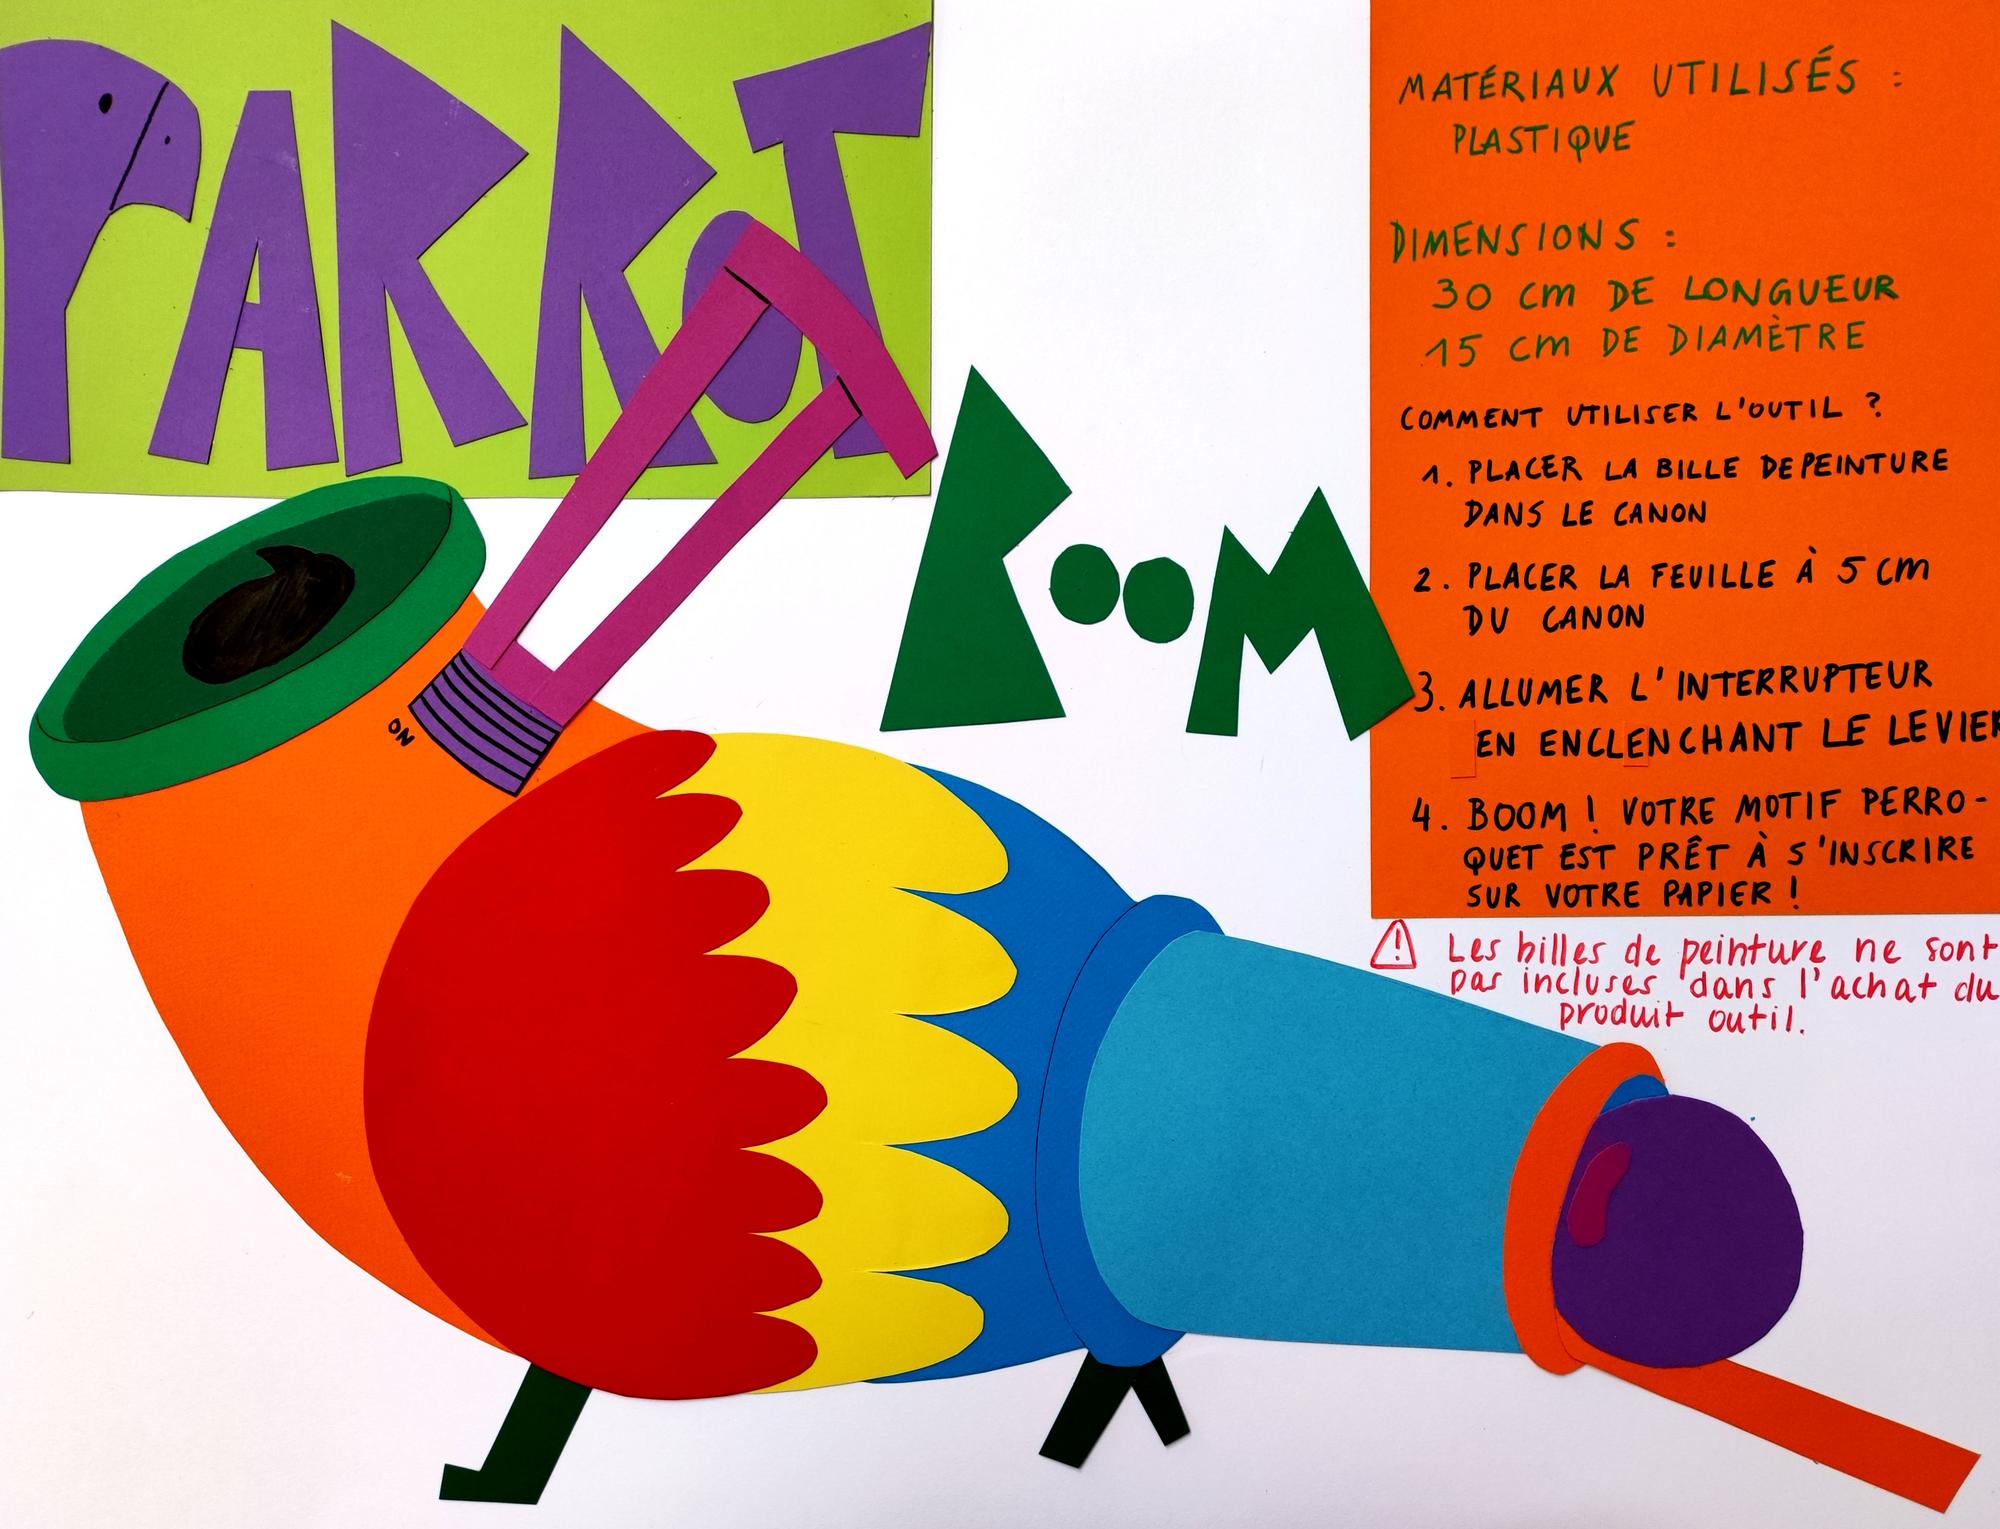 PARROT
BOOM
ON
MATÉRIAUX UTILISÉS :
PLASTIQUE
DIMENSIONS :
30 cm DE LONGUEUR
15 cm DE DIAMÈTRE
COMMENT UTILISER L'OUTIL ?
1. PLACER LA BILLE DE PEINTURE
DANS LE CANON
2. PLACER LA FEUILLE À 5 cm
DU CANON
3. ALLUMER L'INTERRUPTEUR
EN ENCLENCHANT LE LEVIER
4. BOOM ! VOTRE MOTIF PERRO-
QUET EST PRÊT À S'INSCRIRE
SUR VOTRE PAPIER !
Les billes de peinture ne sont
pas incluses dans l'achat du
produit outil.